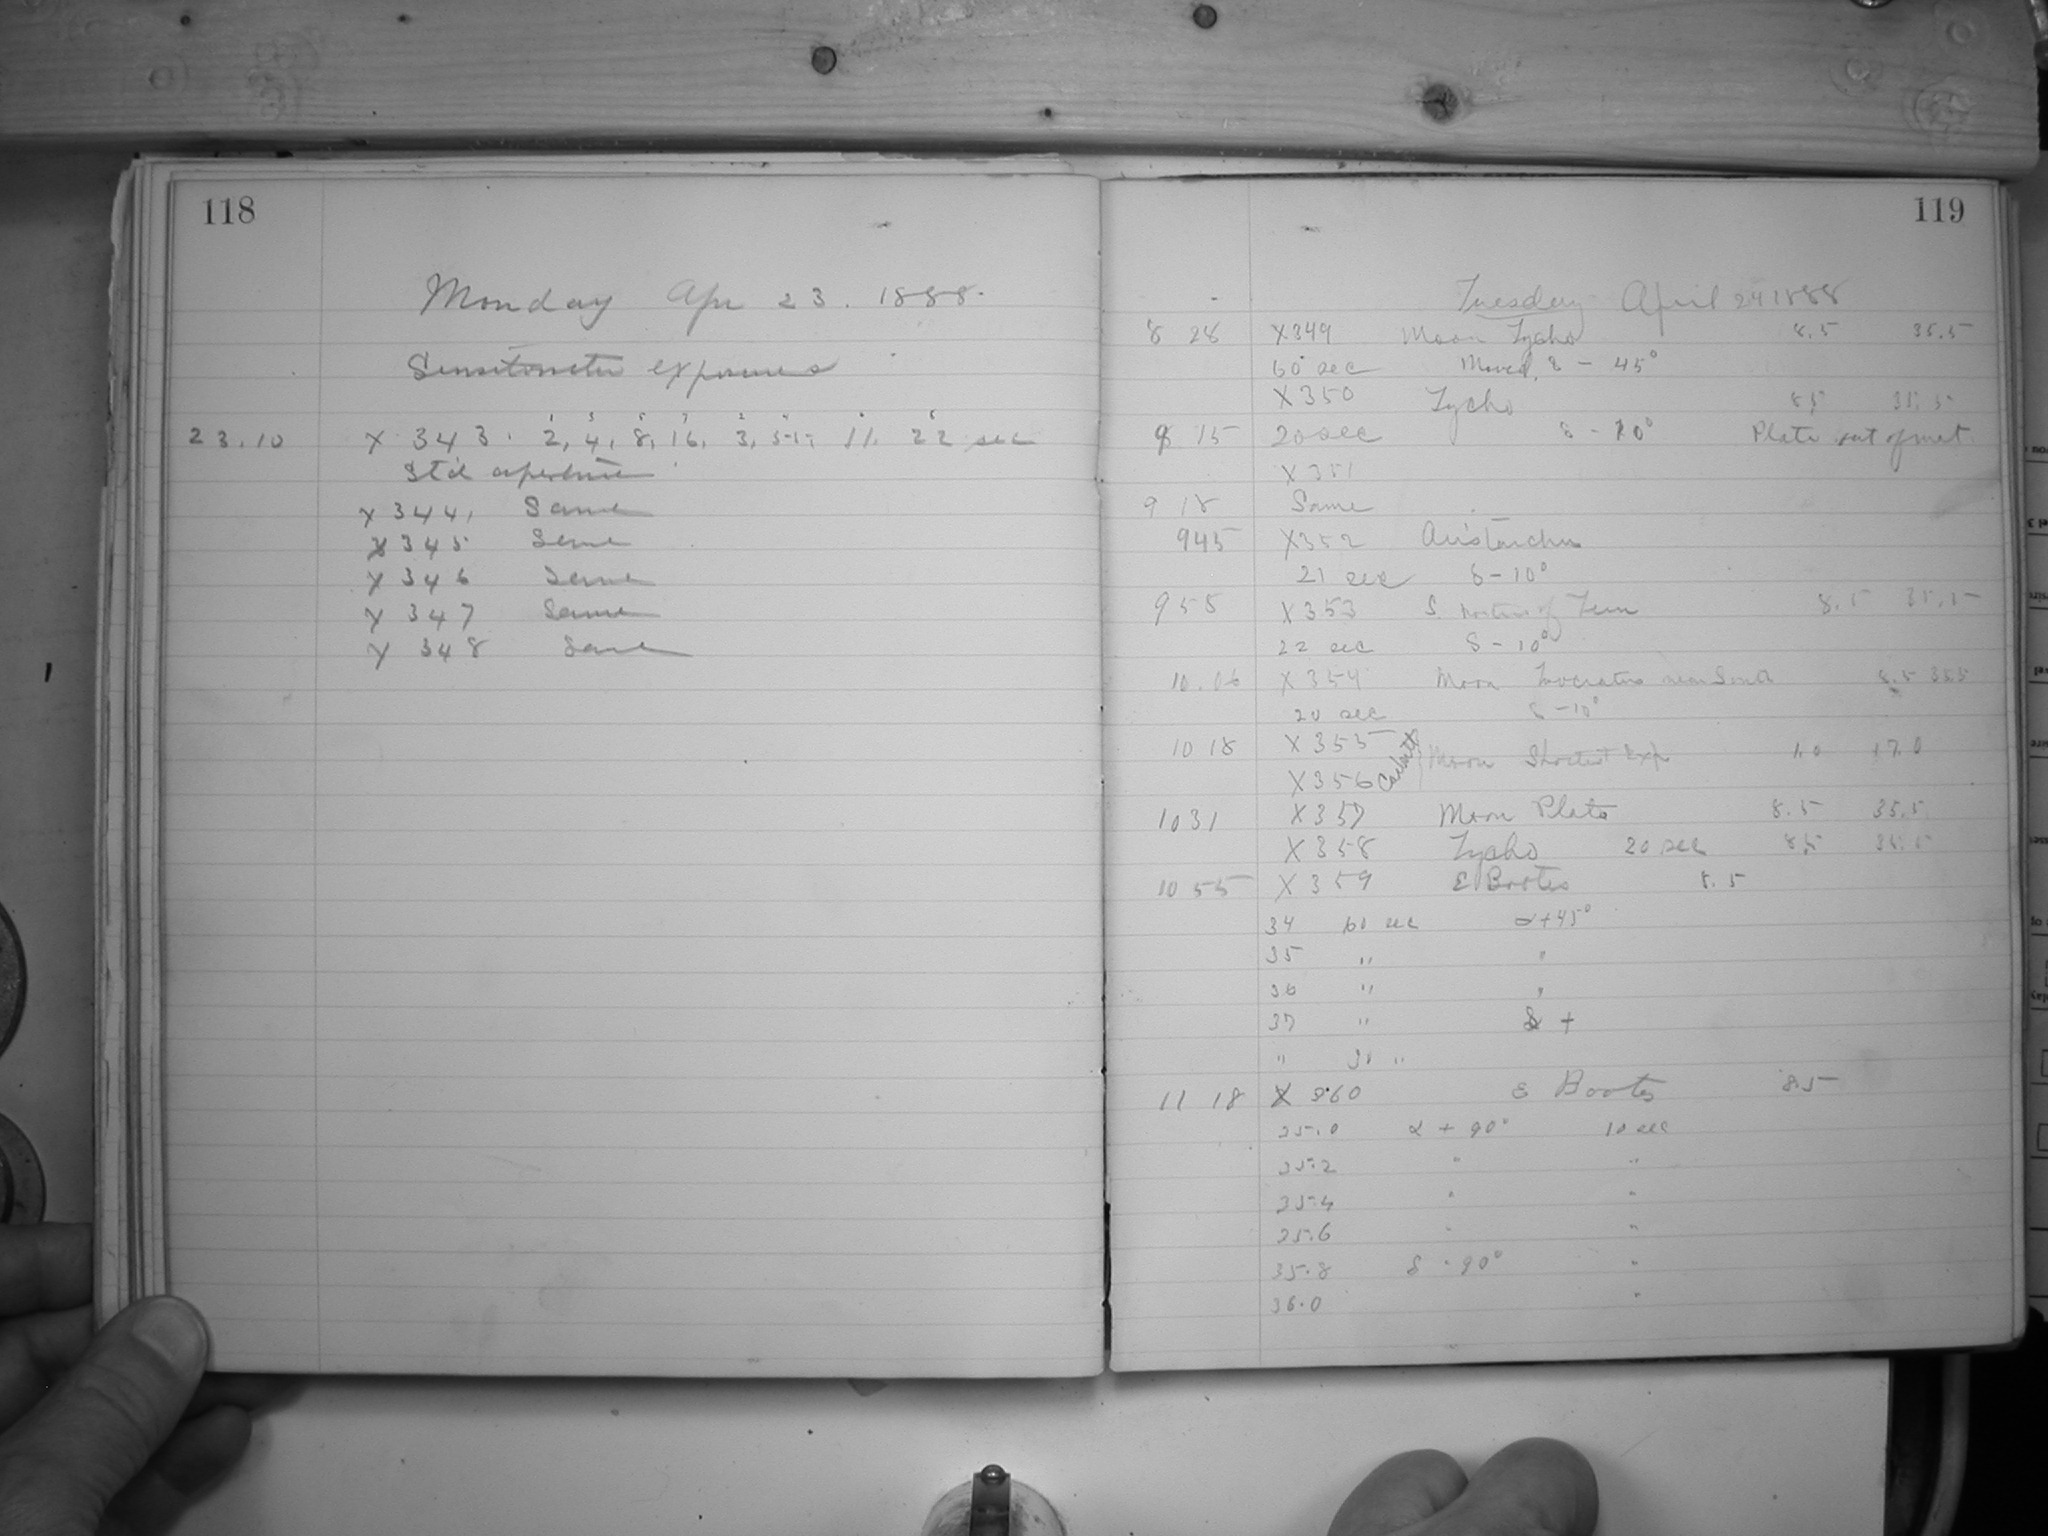 118
Monday Apr 23. 1888.
Sensitometer exposures
23.10 X 343. 2, 4, 8, 16, 3, 5-1-, 11, 22 sec
Std aperture
X 344, Same
X 345 Same
X 346 Same
X 347 Same
X 348 Same
119
Tuesday April 24 1888
8 28 X349 Moon Tycho 8.5 35.5
60 sec Moved, δ - 45°
X350 Tycho 8.5 35.5
9 15 20 sec δ - 10° Plate out of
X 351
9 18 Same
945 X352 Aristarchus
21 sec δ - 10°
955 X353 S. portion of 8.5 35.5
22 sec δ - 10°
10.06 X 354 Moon near South 8.5 35.5
20 sec δ - 10°
10 18 X 355
X 356 Moon Shortest Exp 1.0 17.0
1031 X 357 Moon Plato 8.5 35.5
X 358 Tycho 20 sec 8.5 35.5
10 55 X 359 ε Bootis 8.5
34 60 sec α+45°
35 " "
36 " "
37 " δ +
" 30 "
11 18 X 360 ε Bootis 8.5
35.0 α + 90° 10 sec
35.2 " "
35.4 " "
35.6 " "
35.8 δ - 90° "
36.0 "